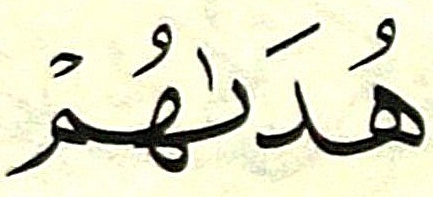 هُدَىٰهُمْ